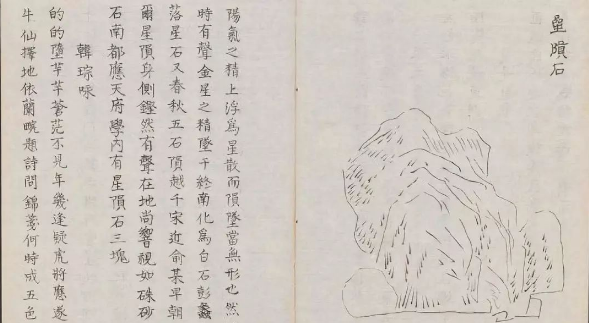 星隕石
陽氣之精上浮為星散而隕墜當無形也然
時有聲金星之精墜于終南化為白石彭蠡
落星石又春秋五石頂越千宋近俞某早朝
爾星隕身側鏗然有聲在地尚響視如硃砂
石南都應天府學內有星隕石三塊
韓琮咏
的的墮芊芊蒼茫不見年幾逢疑虎將應逐
牛仙擇地依蘭畹題詩問錦箋何時成五色